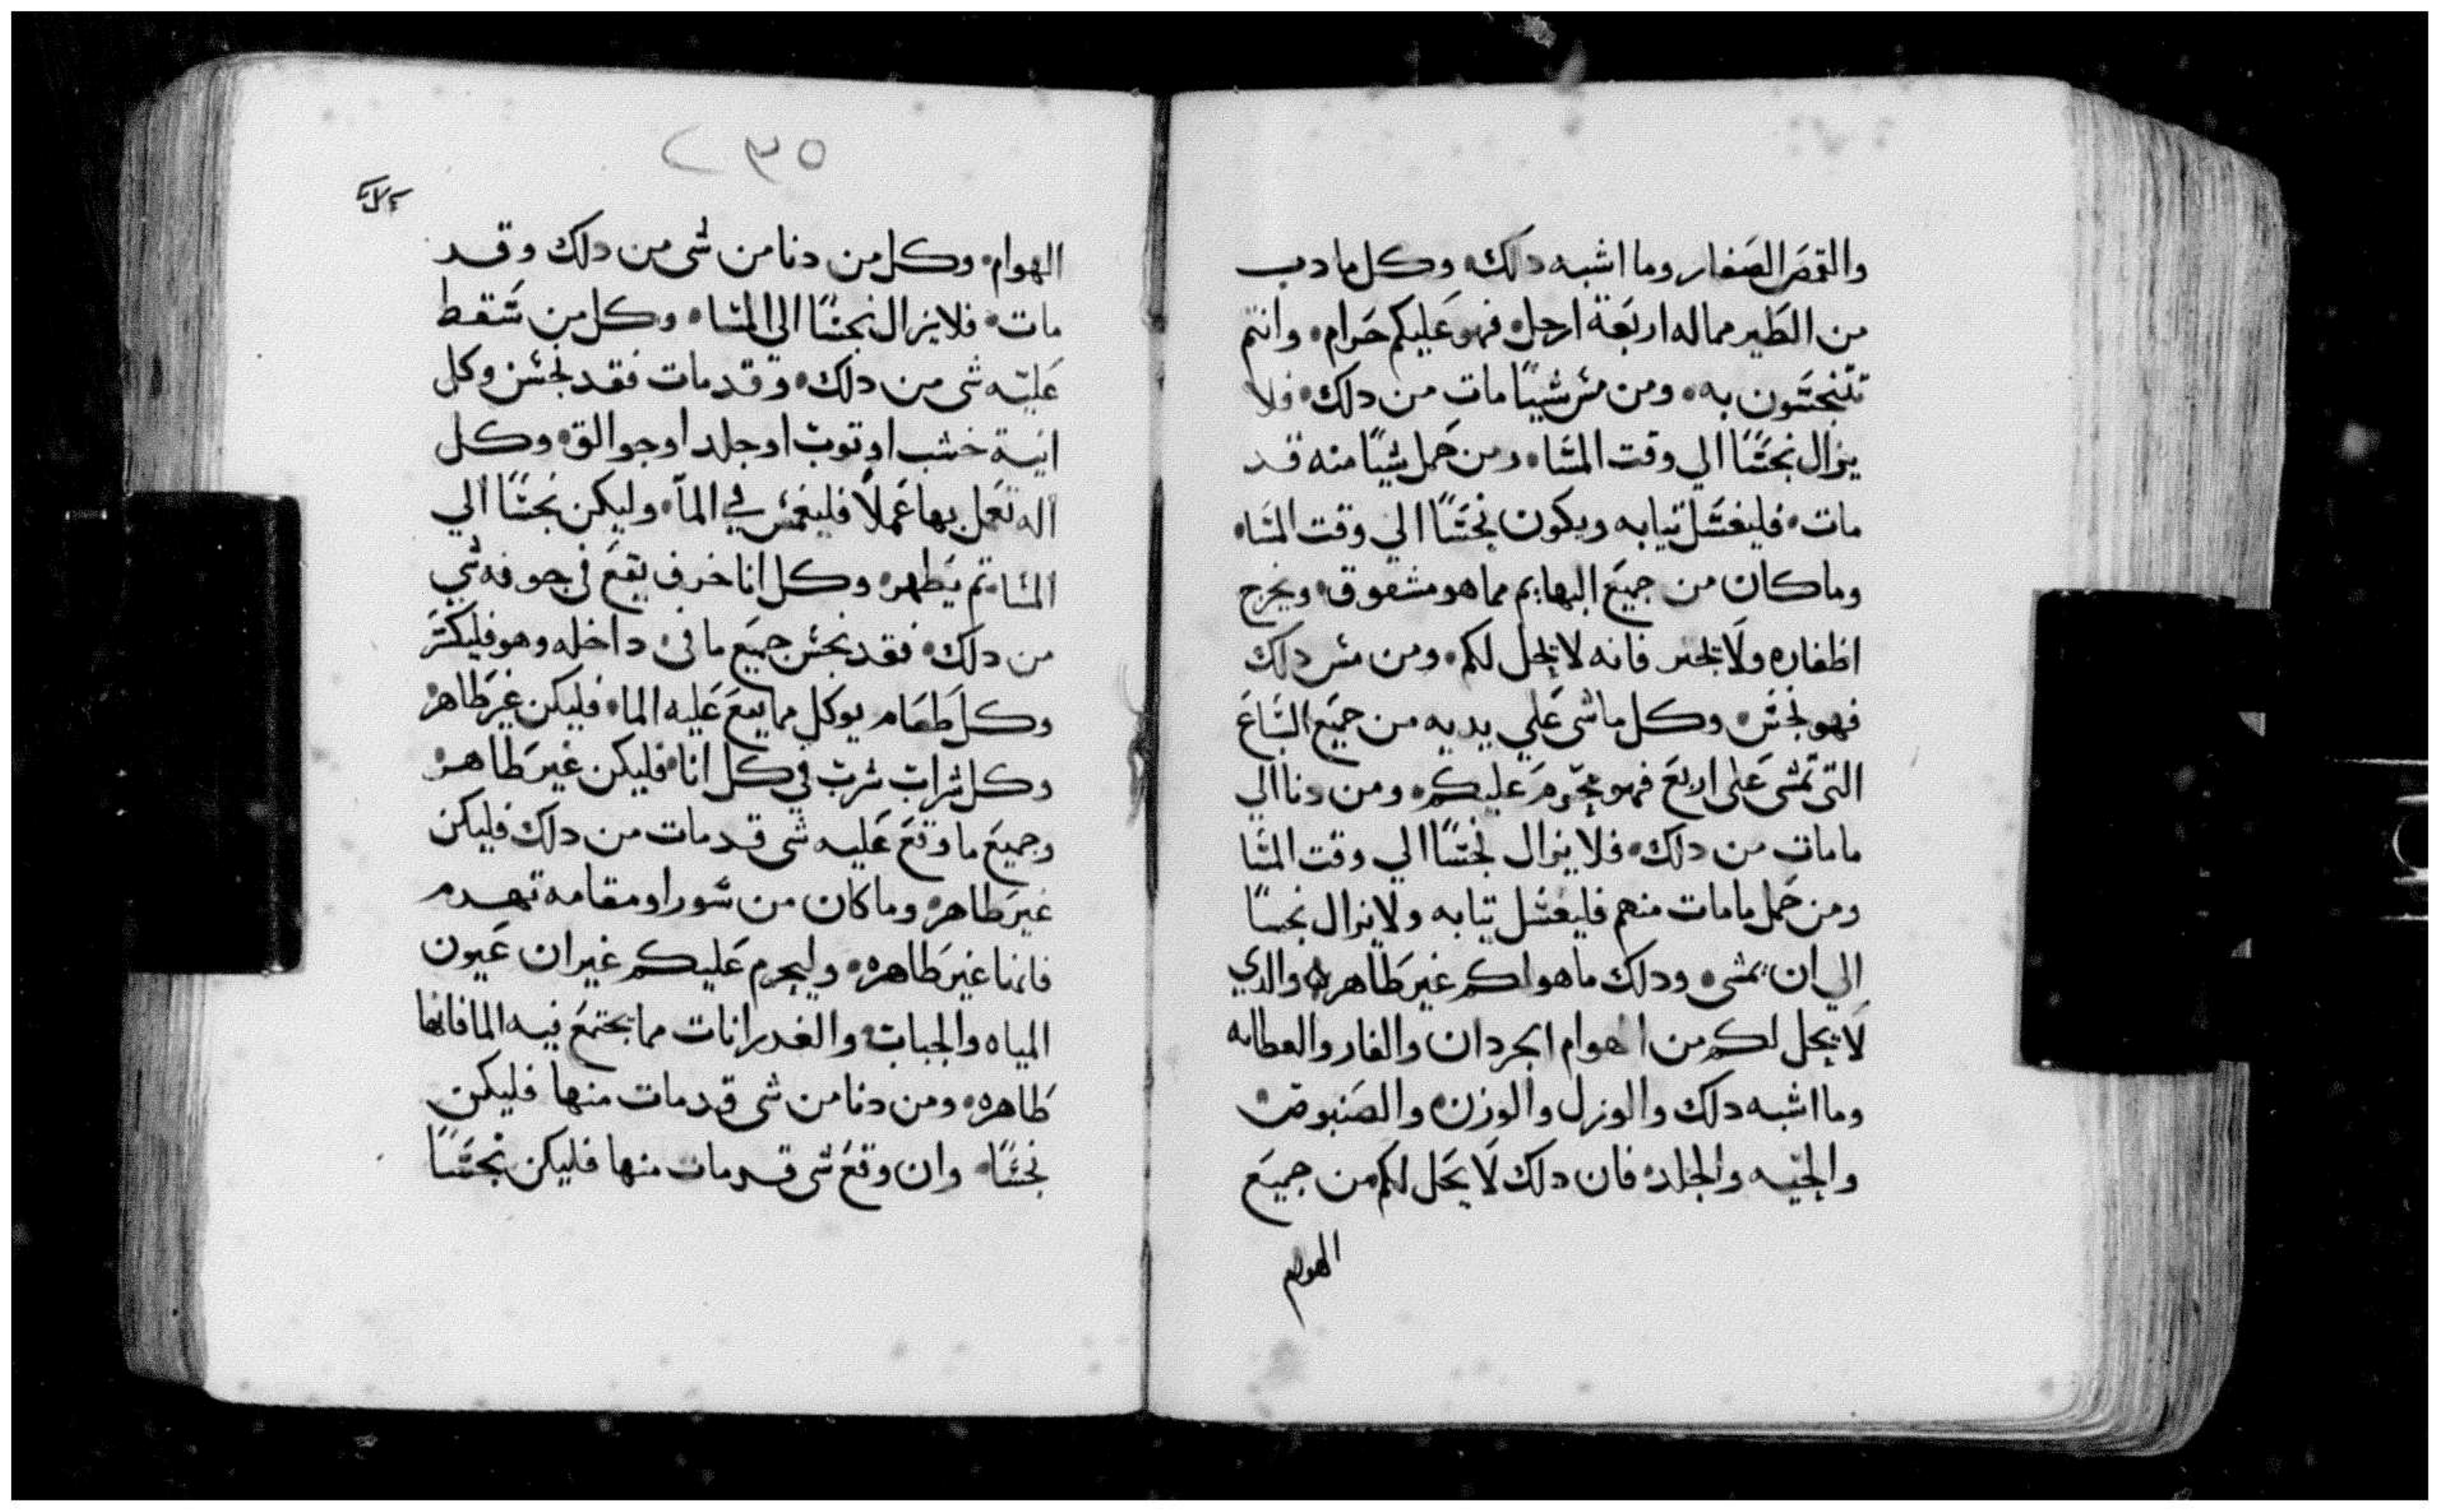 والقمص الصغار وما اشبه دلك وكل ما دب
من الطير مما له اربعة ارجل فهو عليكم حرام وانتم
تتنجسون به ومن مس شيا مات من دلك فلا
يزال نجسا الي وقت المسا ومن حمل شيا منه قد
مات فليغسل تيابه ويكون نجسا الي وقت المسا
وما كان من جميع البهايم مما هو مشقوق ويخرج
اظفاره ولا يجتر فانه لا يحل لكم ومن مس دلك
فهو نجس وكل ما شي علي يديه من جميع السباع
التي تمشي على اربع فهو محرم عليكم ومن دنا الي
ما مات من دلك فلا يزال نجسا الي وقت المسا
ومن حمل ما مات منهم فليغسل تيابه ولا يزال نجسا
الي ان يمسي ودلك ما هو لكم غير طاهر والدي
لا يحل لكم من الهوام الجردان والفار والعطايه
وما اشبه دلك والورل والوزن والصنبوص
والحيه والخلد فان دلك لا يحل لكم من جميع
الهوام
٢٣٥
الهوام وكل من دنا من شي من دلك وقد
مات فلا يزال نجسا الى المسا وكل من سقط
عليه شي من دلك وقد مات فقد نجس وكل
انية خشب او توب او جلد او جوالق وكل
اله تعمل بها عملا فليغمس في المآ وليكن نجسا الي
المسا تم يطهر وكل انا خزف يقع في جوفه شي
من دلك فقد نجس جميع ما في داخله وهو فليكسر
وكل طعام يوكل مما يقع عليه الما فليكن غير طاهر
وكل شراب شرب في كل انا فليكن غير طاهر
وجميع ما وقع عليه شي قد مات من دلك فليكن
غير طاهر وما كان من سور او مقامه تهدم
فانها غير طاهره وليحرم عليكم غير ان عيون
المياه والجباب والغدرانات مما يجتمع فيه الما فانها
طاهره ومن دنا من شي قد مات منها فليكن
نجسا وان وقع شي قد مات منها فليكن نجسا